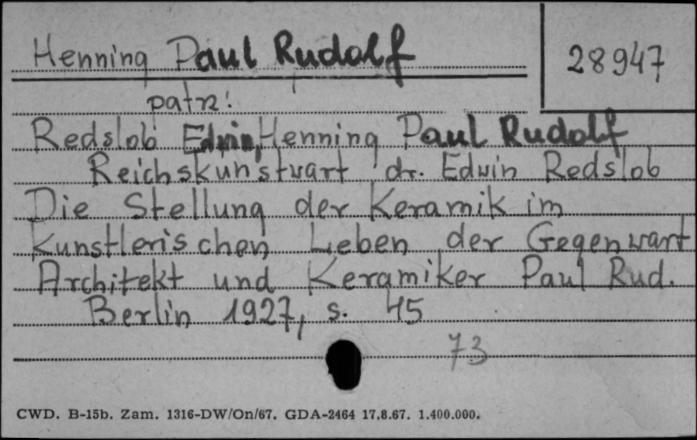 Henning Paul Rudolf
28947
patrz:
Redslob Edwin, Henning Paul Rudolf
Reichskunstwart dr. Edwin Redslob
Die Stellung der Keramik im
Kunstlerischen Leben der Gegenwart
Architekt und Keramiker Paul Rud.
Berlin 1927, s. 45
73
CWD. B-15b. Zam. 1316-DW/On/67. GDA-2464 17.8.67. 1.400.000.